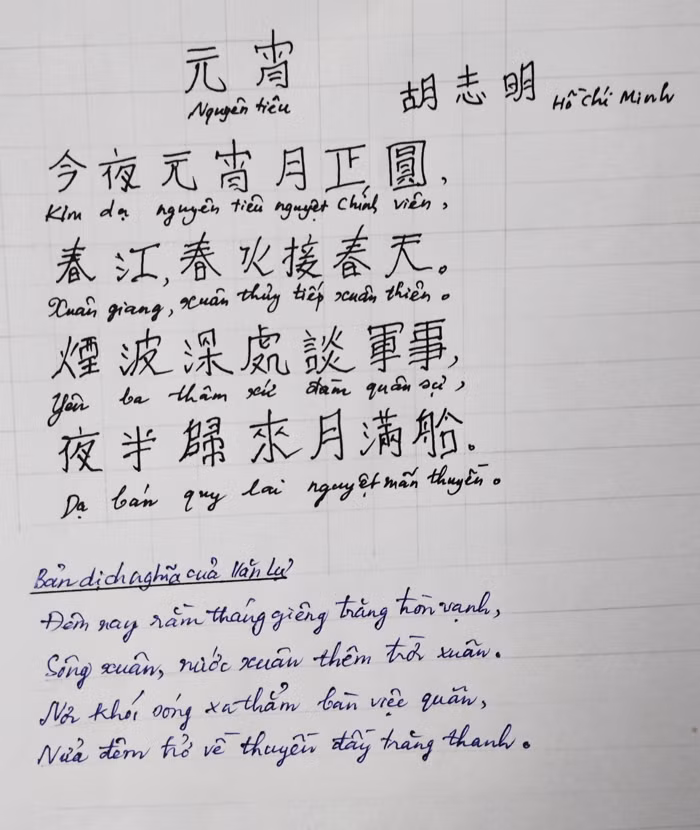 元宵
Nguyên tiêu
胡志明 Hồ Chí Minh
今夜元宵月正圓,
Kim dạ nguyên tiêu nguyệt chính viên,
春江,春水接春天。
Xuân giang, xuân thủy tiếp xuân thiên.
煙波深處談軍事,
Yên ba thâm xứ đàm quân sự,
夜半歸來月滿船。
Dạ bán quy lai nguyệt mãn thuyền.
Bản dịch nghĩa của Văn Lự
Đêm nay rằm tháng giêng trăng tròn vạnh,
Sông xuân, nước xuân thêm trời xuân.
Nơi khói sóng xa thẳm bàn việc quân,
Nửa đêm trở về thuyền đầy trăng thanh.